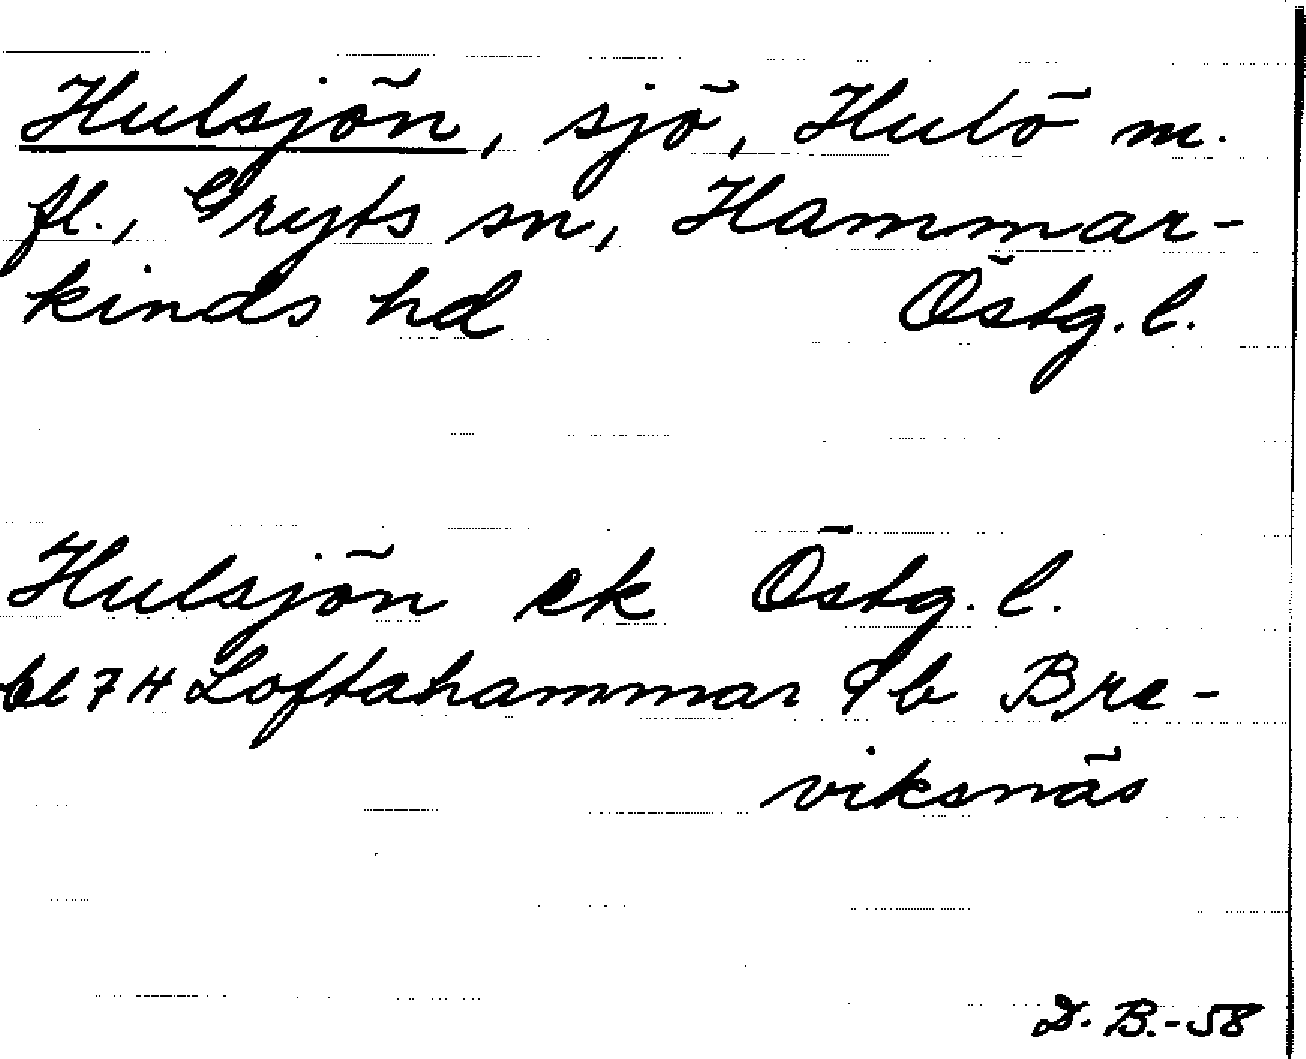 Hulsjön, sjö, Hulö m.
fl., Gryts sn, Hammar-
kinds hd Östg. l.
Hulsjön ek Östg. l.
bl 7 H Loftahammar 9b Bre-
viksnäs
D. B.-58